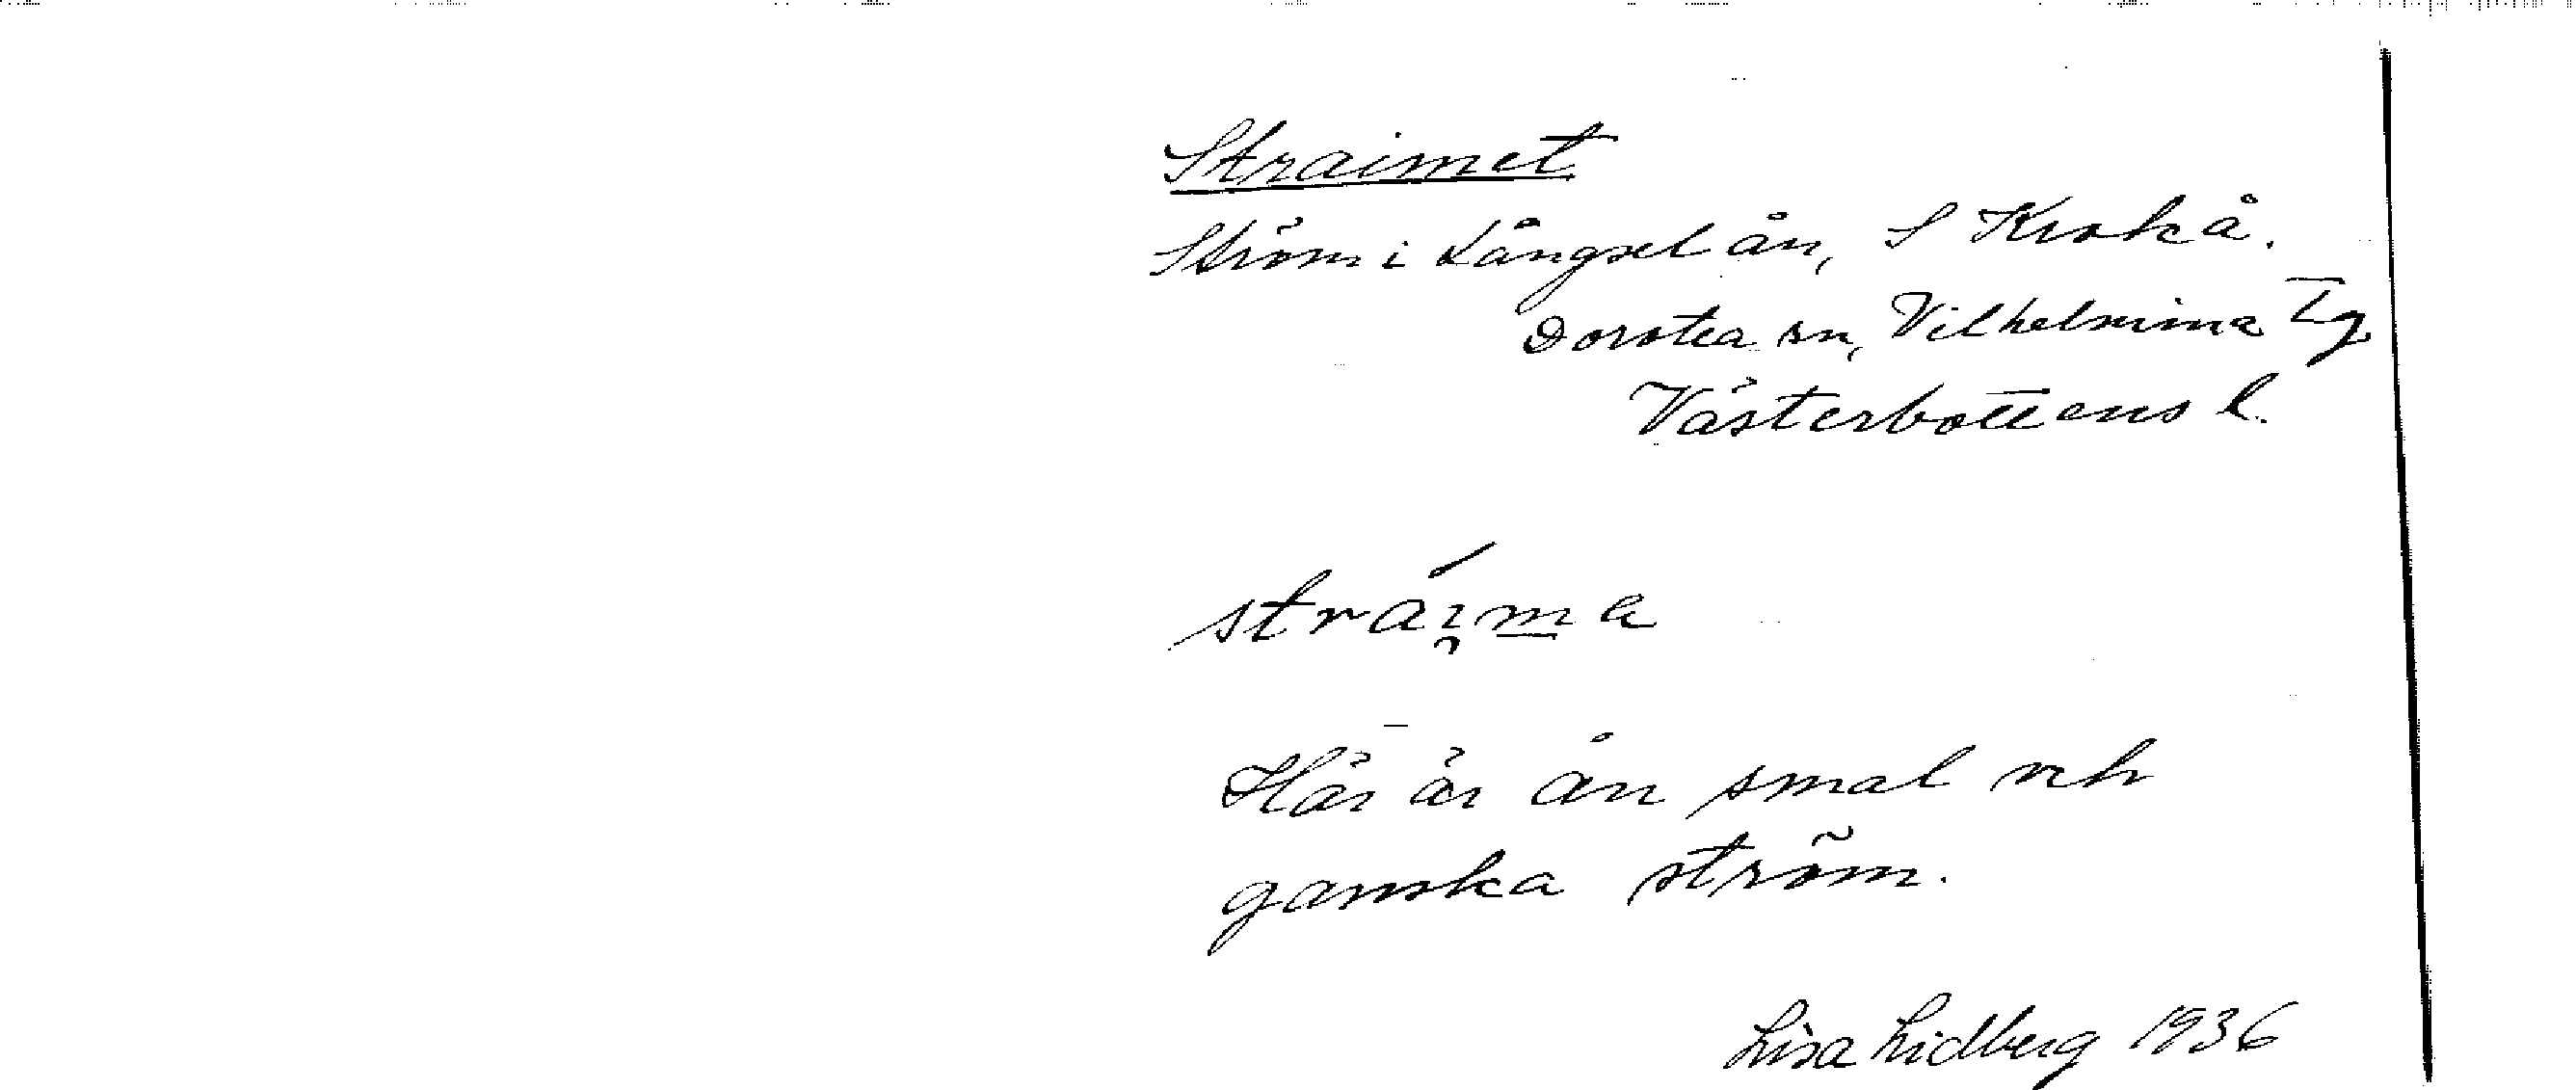 Straimet
Ström i Långselån, S Krokå.
Dorotea sn, Vilhelmina Tg
Västerbottens l.
stra̯ima
Här är ån smal och
ganska ström.
Lisa Lidberg 1936